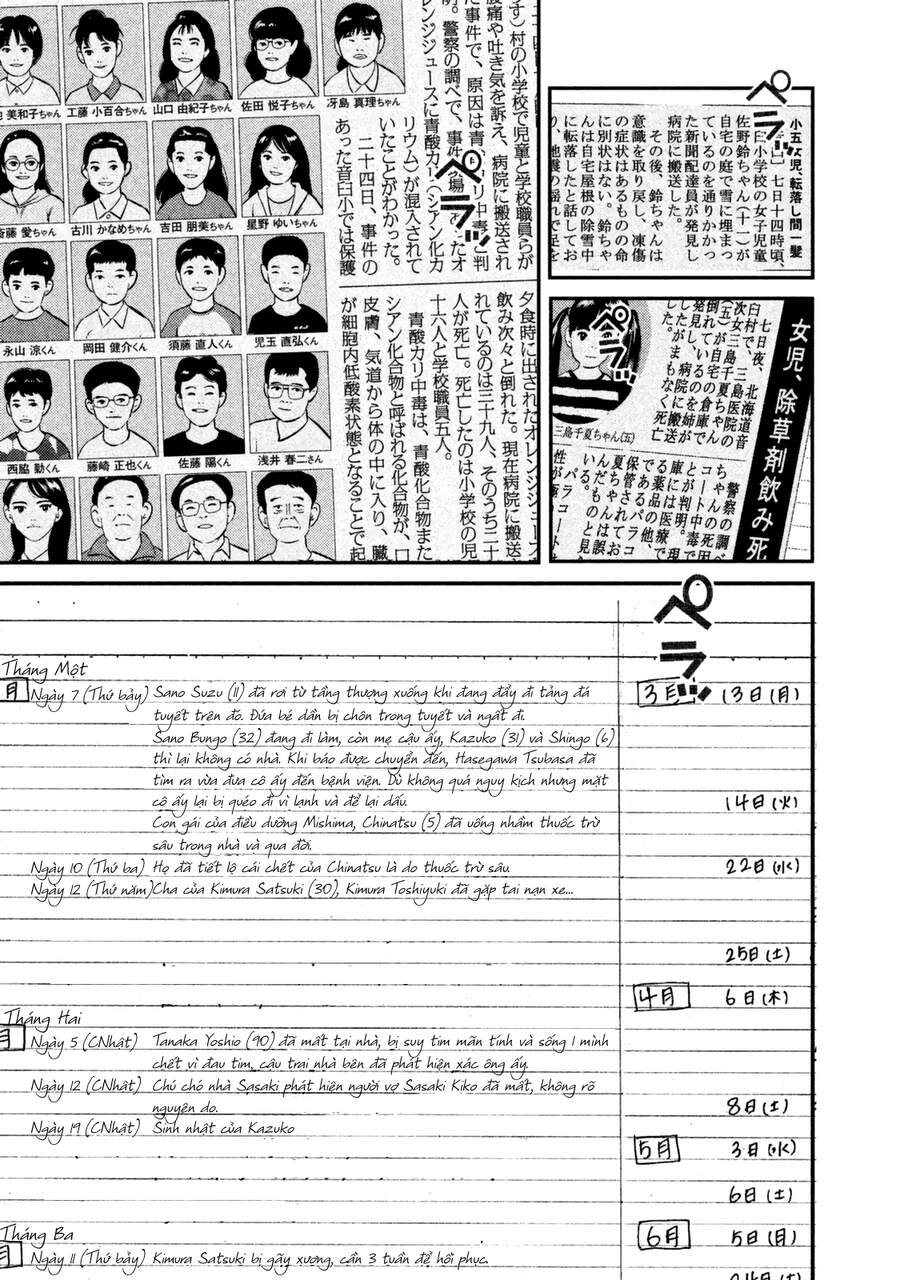 ペラッ
小五女児、転落し間一髪
七日十四時頃、
臼小学校の女子児童
佐野鈴ちゃん(十一)が
自宅の庭で雪に埋まっ
ているのを通りかかっ
た新聞配達員が発見し
病院に搬送した。
その後、鈴ちゃんは
意識を取り戻し、凍傷
の症状はあるものの命
に別状はない。鈴ちゃ
んは自宅屋根の除雪中
に転落したと話してお
す)村の小学校で児童と学校職員らが
腹痛や吐き気を訴え、病院に搬送され
た事件で、
警察の調べで、
レンジジュースに青酸カリ(シアン化カ
リウム)が混入されて
いたことがわかった。
二十四日、事件の
あった音臼小では保護
美和子ちゃん
工藤 小百合ちゃん
山口 由紀子ちゃん
佐田 悦子ちゃん
冴島 真理ちゃん
斎藤 愛ちゃん
古川 かなめちゃん
吉田 朋美ちゃん
星野 ゆいちゃん
永山 涼くん
岡田 健介くん
須藤 直人くん
児玉 直弘くん
西脇 勤くん
藤崎 正也くん
佐藤 陽くん
浅井 春二さん
ペラッ
夕食時に出されたオレンジジュース
飲み次々と倒れた。現在病院に搬送
れているのは三十九人、そのうち二十
人が死亡。死亡したのは小学校の児
十六人と学校職員五人。
青酸カリ中毒は、青酸化合物また
シアン化合物と呼ばれる化合物が、口
皮膚、気道から体の中に入り、臓
が細胞内低酸素状態となることで起
女児、除草剤飲み死
ペラッ
七日夜、北海道音
臼村で、三島医院の
次女三島千夏ちゃん
(五)が自宅の倉庫で
倒れているのを姉が
発見し、病院に搬送
したがまもなく死亡
した。
三島千夏ちゃん(五)
警察の調べ
ちゃんの死因
コート中毒で
とが判明。現
庫には医療で
る薬品の他、
であるパラコ
保管されてお
夏ちゃんは誤
んだものと見
いる。
パラコート
性が極
ペラッ
Tháng Một
月
Ngày 7 (Thứ bảy) Sano Suzu (11) đã rơi từ tầng thượng xuống khi đang đẩy đi tảng đá
tuyết trên đó. Đứa bé dần bị chôn trong tuyết và ngất đi.
Sano Bungo (32) đang đi làm, còn mẹ cậu ấy, Kazuko (31) và Shingo (6)
thì lại không có nhà. Khi báo được chuyển đến, Hasegawa Tsubasa đã
tìm ra vừa đưa cô ấy đến bệnh viện. Dù không quá nguy kịch nhưng mặt
cô ấy lại bị quéo đi vì lạnh và để lại dấu.
Con gái của điều dưỡng Mishima, Chinatsu (5) đã uống nhầm thuốc trừ
sâu trong nhà và qua đời.
Ngày 10 (Thứ ba) Họ đã tiết lộ cái chết của Chinatsu là do thuốc trừ sâu.
Ngày 12 (Thứ năm) Cha của Kimura Satsuki (30), Kimura Toshiyuki đã gặp tai nạn xe...
Tháng Hai
月
Ngày 5 (CNhật) Tanaka Yoshio (90) đã mất tại nhà, bị suy tim mãn tính và sống 1 mình
chết vì đau tim, cậu trai nhà bên đã phát hiện xác ông ấy.
Ngày 12 (CNhật) Chú chó nhà Sasaki phát hiện người vợ Sasaki Kiko đã mất, không rõ
nguyên do.
Ngày 19 (CNhật) Sinh nhật của Kazuko
Tháng Ba
月
Ngày 11 (Thứ bảy) Kimura Satsuki bị gãy xương, cần 3 tuần để hồi phục.
3月 13日(月)
14日(火)
22日(水)
25日(土)
4月 6日(木)
8日(土)
5月 3日(水)
6日(土)
6月 5日(月)
24日(土)